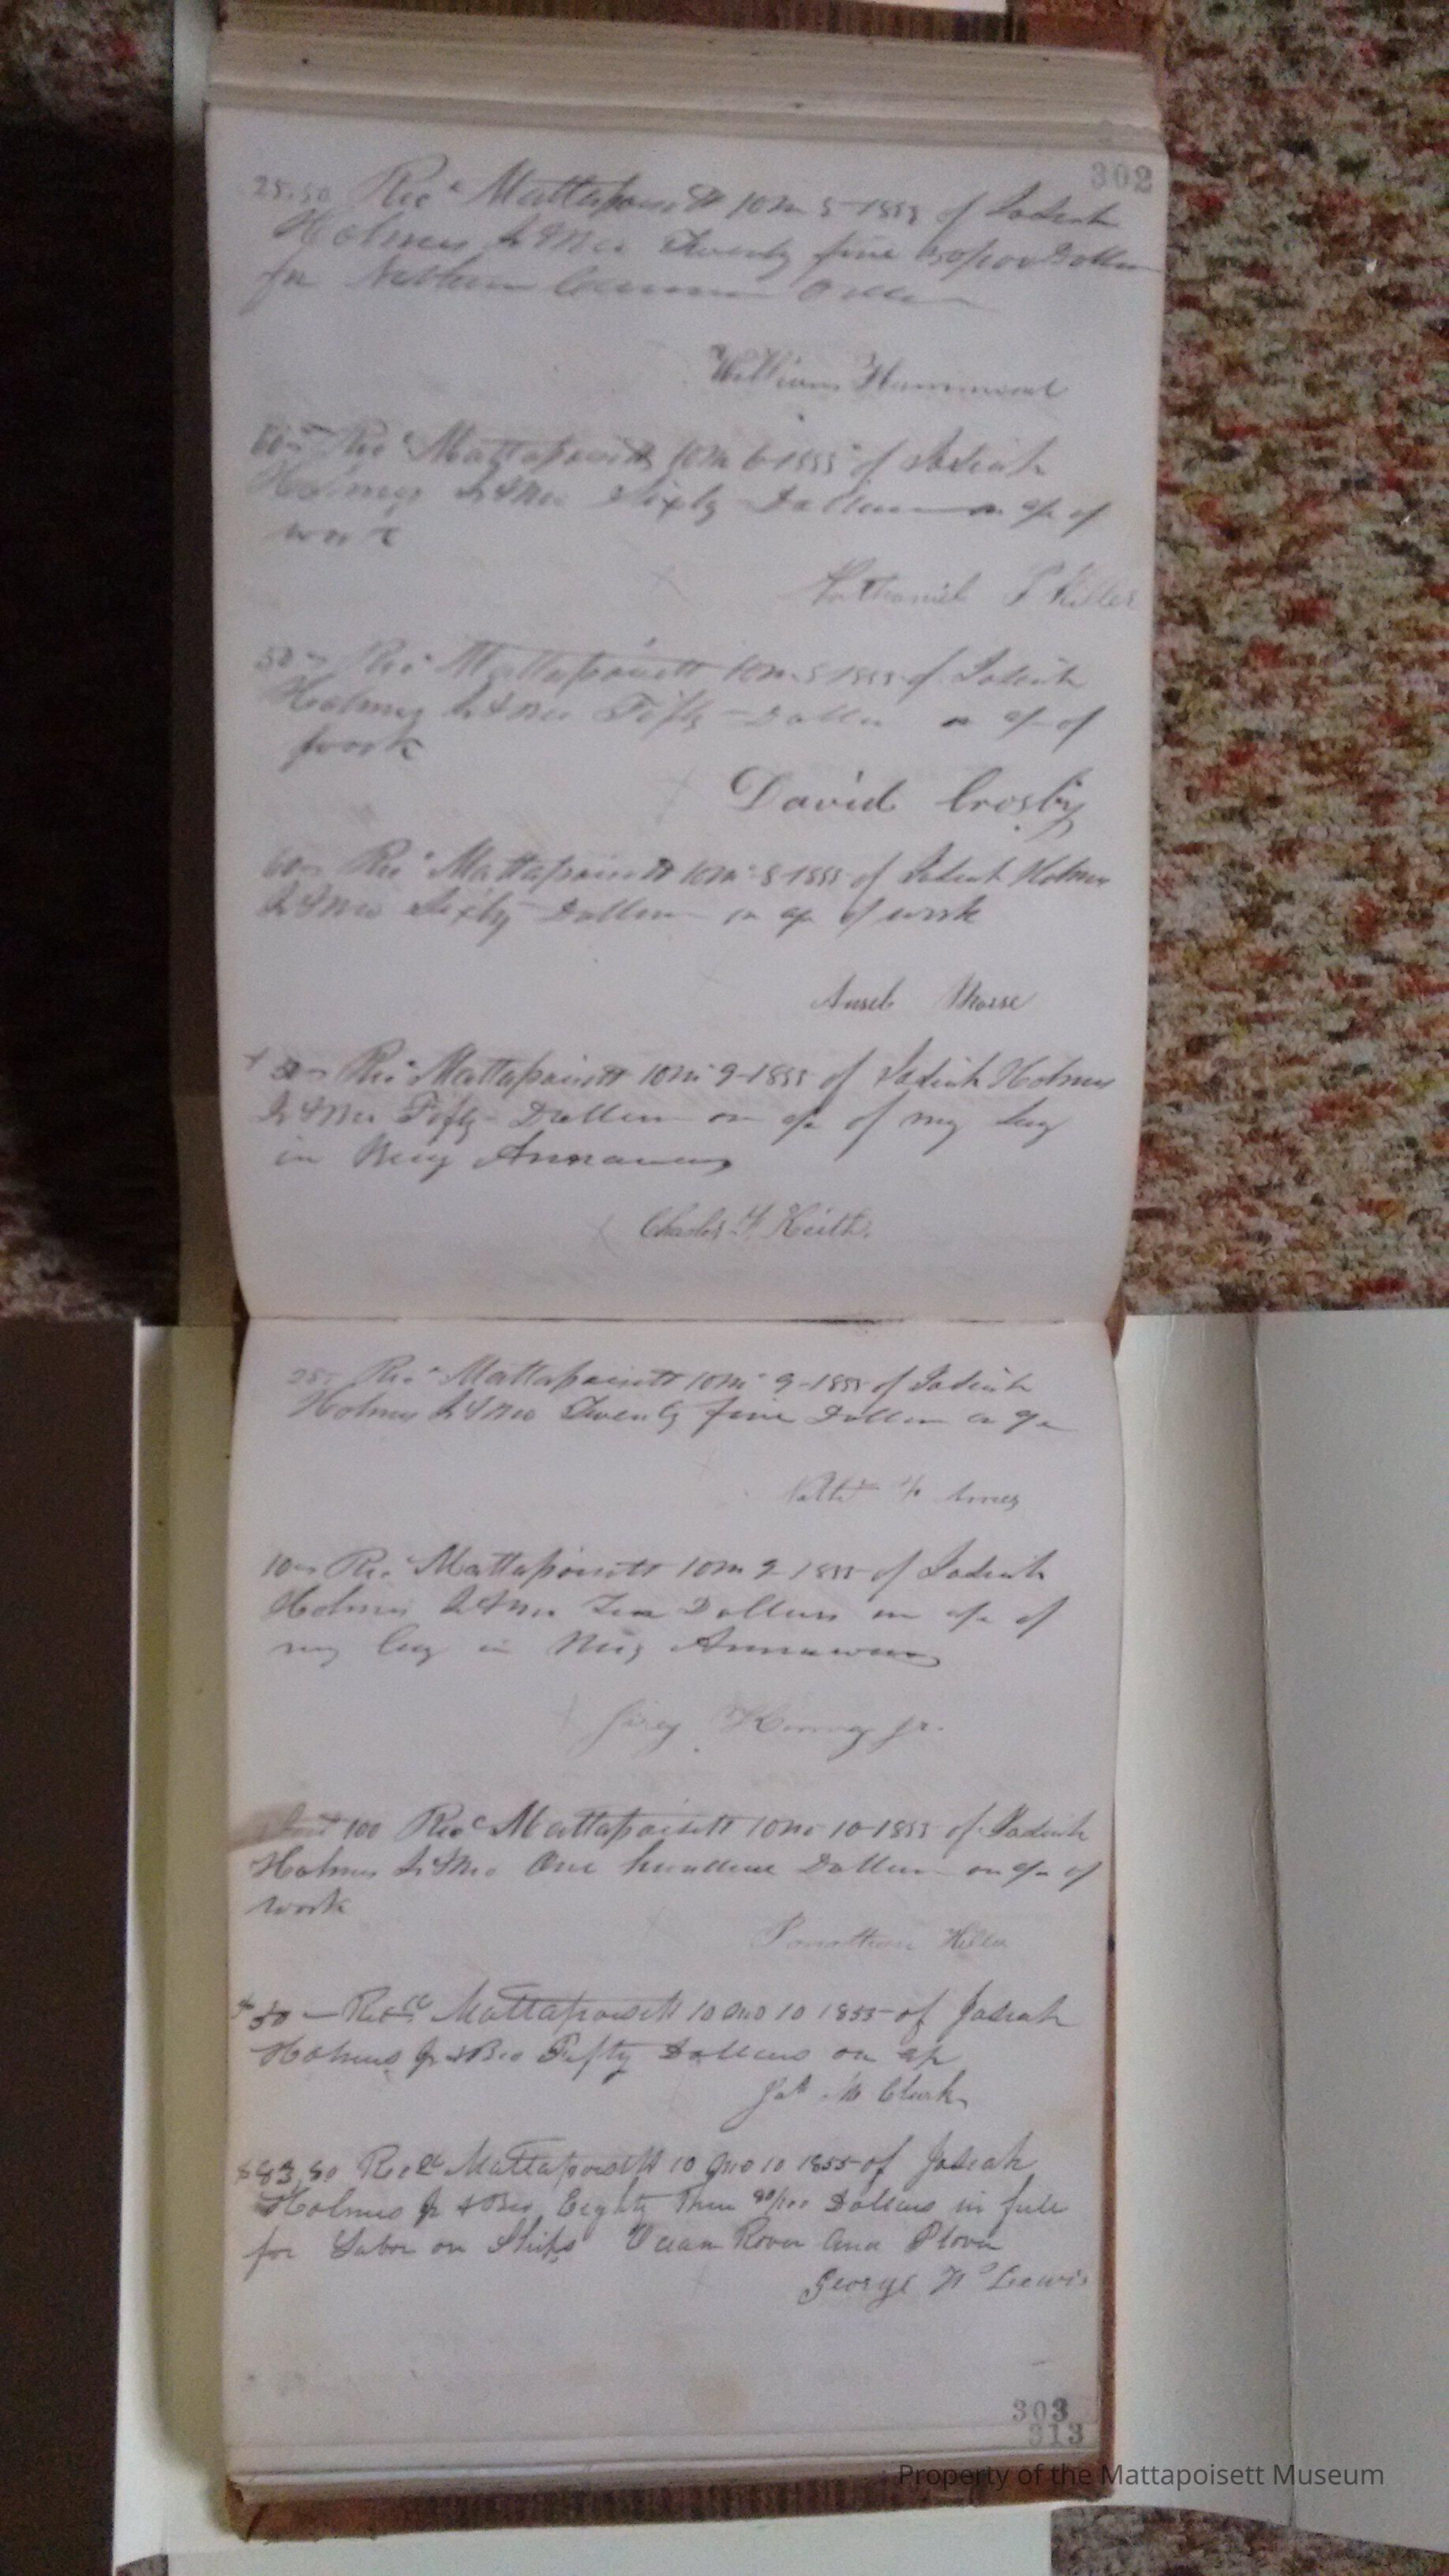 302
25.50 Recd Mattapoisett 10m 5-1855 of Josiah
Holmes Jr & Bro Twenty five 50/100 Dollars
for
William Hammond
60 - Recd Mattapoisett 10m 6-1855 of Josiah
Holmes Jr & Bro Sixty Dollars on a/c of
work
Nathaniel P Hiller
50 - Recd Mattapoisett 10m 8-1855 of Josiah
Holmes Jr & Bro Fifty Dollars on a/c of
work
David Crosby
60 - Recd Mattapoisett 10m 8-1855 of Josiah Holmes
Jr & Bro Sixty Dollars on a/c of work
Ansel
50 - Recd Mattapoisett 10m 9-1855 of Josiah Holmes
Jr & Bro Fifty Dollars on a/c of my Lay
in Annawan
Charles F. Keith.
25 - Recd Mattapoisett 10m 9-1855 of Josiah
Holmes Jr & Bro Twenty five Dollars on a/c
Ames
10 - Recd Mattapoisett 10m 9-1855 of Josiah
Holmes Jr & Bro Ten Dollars on a/c of
my Lay in Annawan
Kinney Jr.
100 Recd Mattapoisett 10mo 10-1855 of Josiah
Holmes Jr & Bro One hundred Dollars on a/c of
work
Jonathan Hiller
50 - Recd Mattapoisett 10 mo 10 1855 of Josiah
Holmes Jr & Bro Fifty Dollars on a/c
Jas M Clark
$83,80 Recd Mattapoisett 10 mo 10 1855 of Josiah
Holmes Jr & Bro Eighty Three 80/100 Dollars in full
for Labor on Ships Ocean Rover and Plover
George W Lewis
303
313
Property of the Mattapoisett Museum